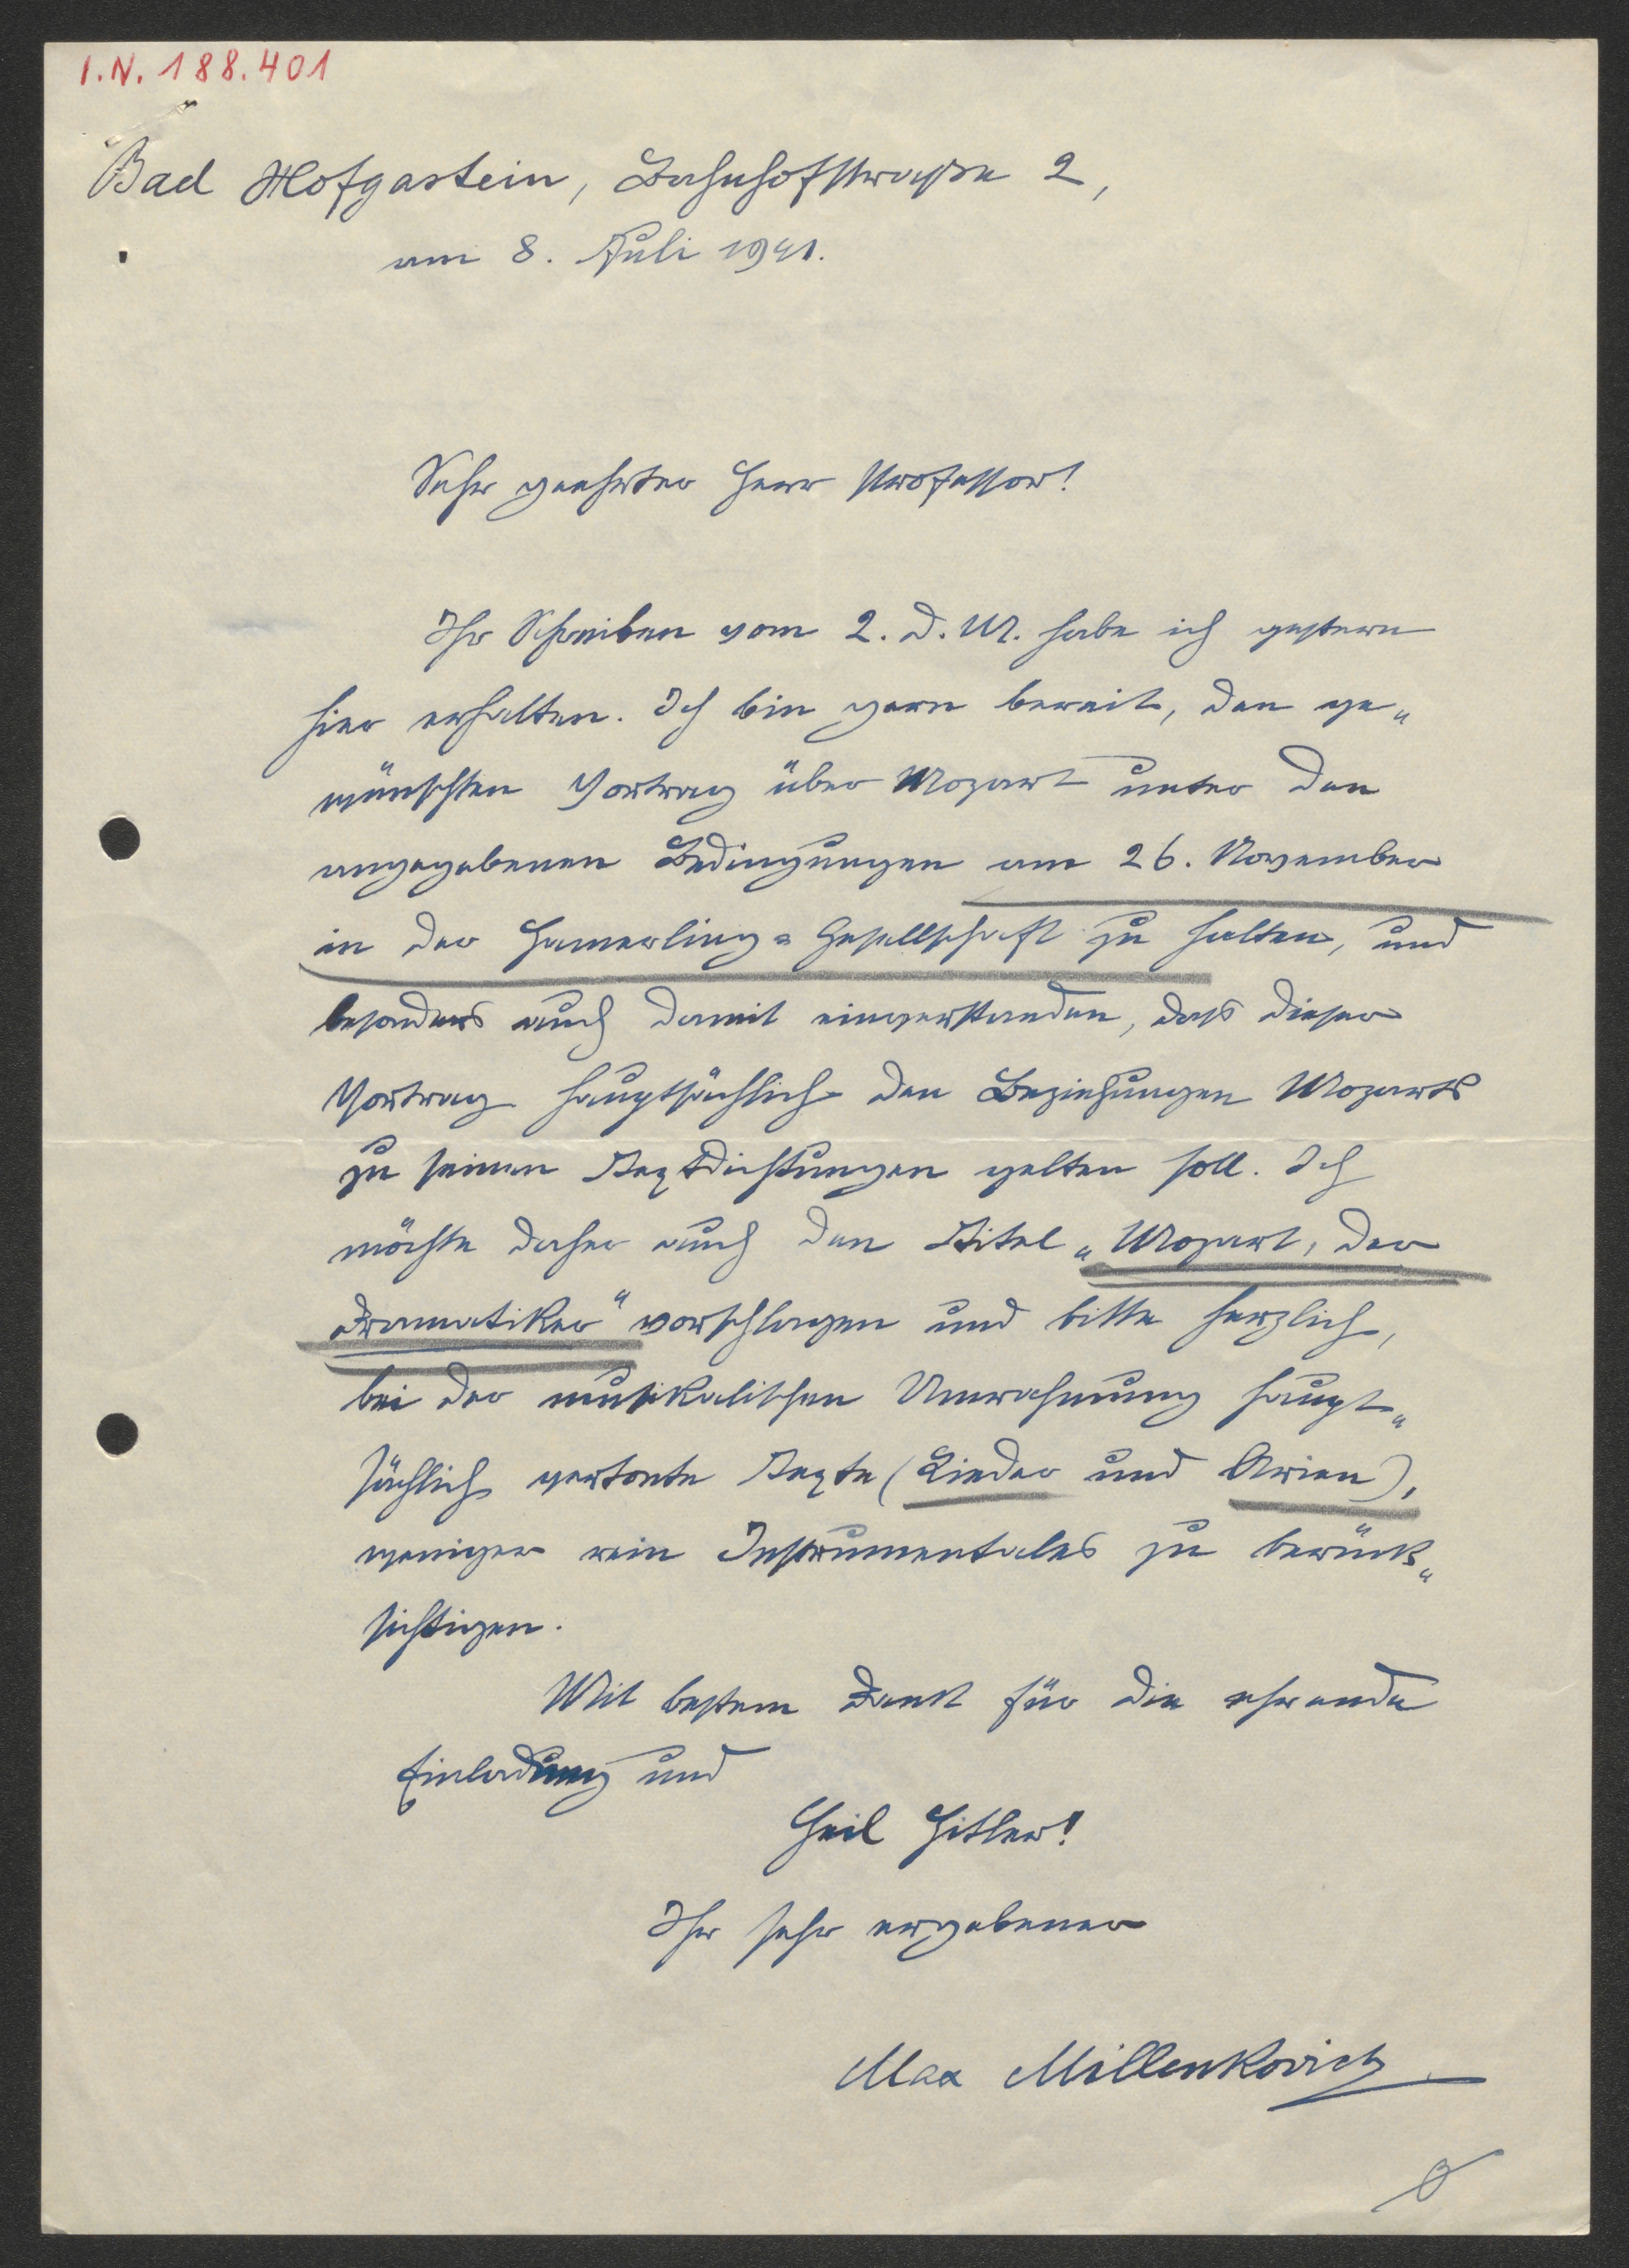 I.N. 188.401
Bad Hofgastein, Bahnhofstraße 2,
am 8. Juli 1941.
Sehr geehrter Herr Professor!
Ihr Schreiben vom 2. d. M. habe ich gestern
hier erhalten. Ich bin gern bereit, den ge„
wünschten Vortrag über Mozart unter den
angegebenen Bedingungen am 26. November
in der Hamerling=Gesellschaft zu halten, und
besonders auch damit einverstanden, dass dieser
Vortrag hauptsächlich den Beziehungen Mozarts
zu seinen Textdichtungen gelten soll. Ich
möchte daher auch den Titel „Mozart, der
Dramatiker“ vorschlagen und bitte herzlich,
bei der musikalischen Umrahmung haupt„
sächlich vertonte Texte (Lieder und Arien),
weniger rein Instrumentales zu berück„
sichtigen.
Mit bestem Dank für die ehrende
Einladung und
Heil Hitler!
Ihr sehr ergebener
Max Millenkovich